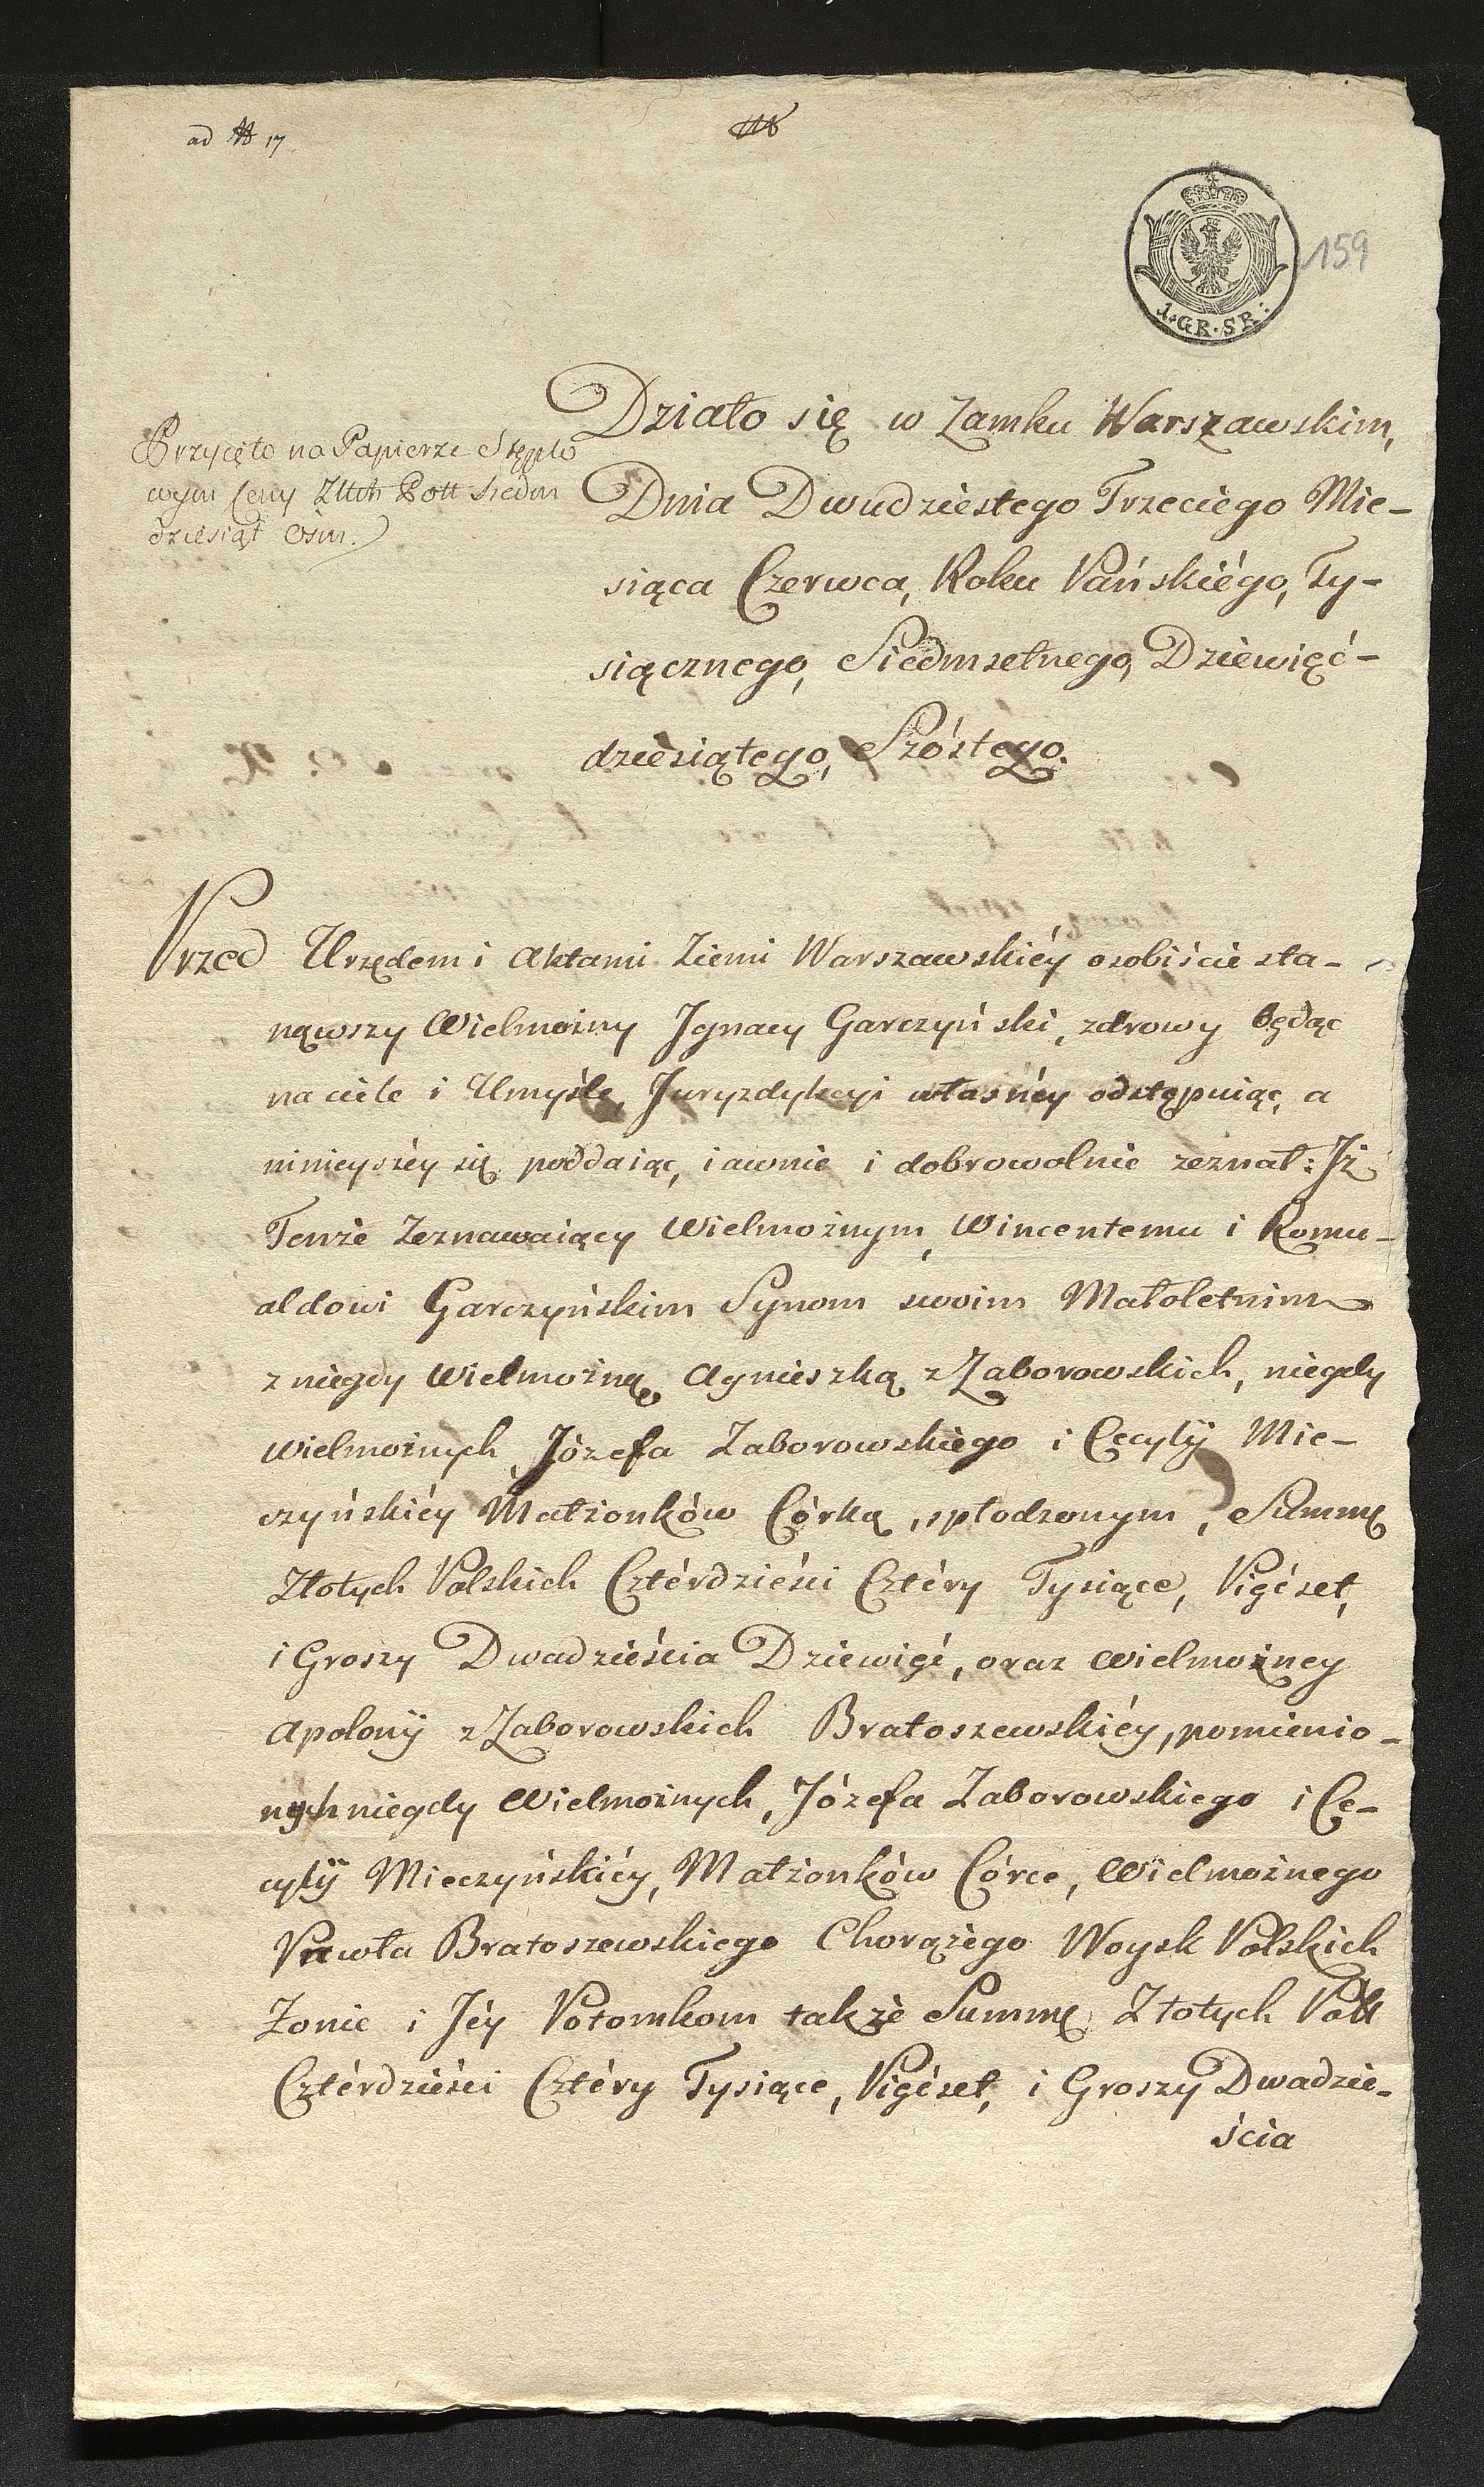 ad № 17
159
1.GR.SR:
Działo się w Zamku Warszawskim,
Dnia Dwudziestego Trzeciego Mie-
siąca Czerwca, Roku Pańskiégo, Ty-
siącznego, Siedmsetnego, Dziewięć-
dziesiątego, Szóstego.
Przyięto na Papierze Stęplo
wym Ceny Złłch Poll siedm
dziesiąt ośm.
Przed Urzędem i Aktami Ziemi Warszawskiéy osobiście sta-
nąwszy Wielmożny Jgnacy Garczyński, zdrowy będąc
na ciele i Umyśle, Juryzdykcyi własnéy odstępuiąc, a
ninieyszéy się poddaiąc, iawnie i dobrowolnie zeznał: Jż
Tenże Zeznawaiący Wielmożnym, Wincentemu i Romu-
aldowi Garczyńskim Synom swoim Małoletnim
z niegdy Wielmożną Agnieszką z Zaborowskich, niegdy
Wielmożnych, Józefa Zaborowskiégo i Cęcylij Mie-
czyńskiéy Małżonków Córką, spłodzonym, Summę
Złotych Polskich Cztérdzieści Cztéry Tysiące, Pięćset,
i Groszy Dwadzieścia Dziewięć, oraz Wielmożney
Apolonij z Zaborowskich Bratoszewskiéy, pomienio-
nych niegdy Wielmożnych, Józefa Zaborowskiego i Cę-
cylij Mieczyńskiéy, Małżonków Córce, Wielmożnego
Pawła Bratoszewskiego Chorążego Woysk Polskich
Żonie i Jéy Potomkom także Summę Złotych Poll
Cztérdzieści Cztéry Tysiące, Pięćset, i Groszy Dwadzie-
ścia